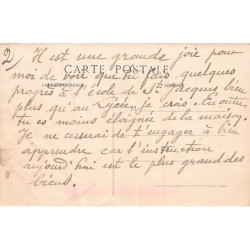 2) Il est une grande joie pour
CARTE POSTALE
moi de voir que tu fais quelques
CORRESPONDANCE
progrès à l'école de St Jacques bien
plus qu'au Lycée je crois. En outre
tu es moins éloignée de la maison
Je ne cesserai de t'engager à bien
apprendre car l'instruction
aujourd'hui est le plus grand des
biens.